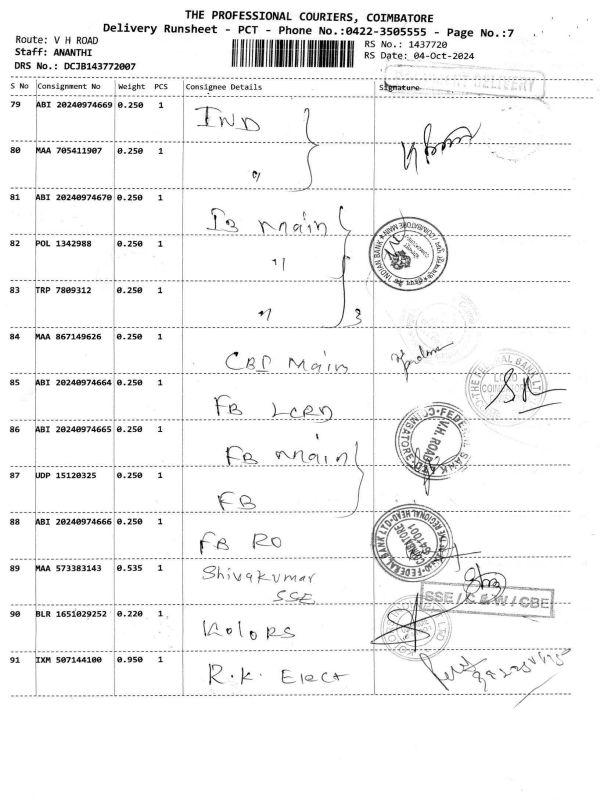 THE PROFESSIONAL COURIERS, COIMBATORE
Delivery Runsheet - PCT - Phone No.:0422-3505555 - Page No.:7
Route: V H ROAD
Staff: ANANTHI
DRS No.: DCJB143772007
RS No.: 1437720
RS Date: 04-Oct-2024
S No Consignment No Weight PCS Consignee Details Signature
DELIVERY
79 ABI 20240974669 0.250 1 IND
80 MAA 705411907 0.250 1 "
81 ABI 20240974670 0.250 1 IB Main
82 POL 1342988 0.250 1 "
INDIAN BANK COIMBATORE MAIN
83 TRP 7809312 0.250 1 " 3
84 MAA 867149626 0.250 1 CBI Main
85 ABI 20240974664 0.250 1 FB LCRD
THE FEDERAL BANK LTD
86 ABI 20240974665 0.250 1 FB Main
FEDERAL BANK
V.H. ROAD
87 UDP 15120325 0.250 1 FB
88 ABI 20240974666 0.250 1 FB RO
FEDERAL BANK LTD
REGIONAL HEAD
COIMBATORE
641001
89 MAA 573383143 0.535 1 Shivakumar
SSE
SSE / C & W / CBE
90 BLR 1651029252 0.220 1 Kolors
91 IXM 507144100 0.950 1 R.K. Elect